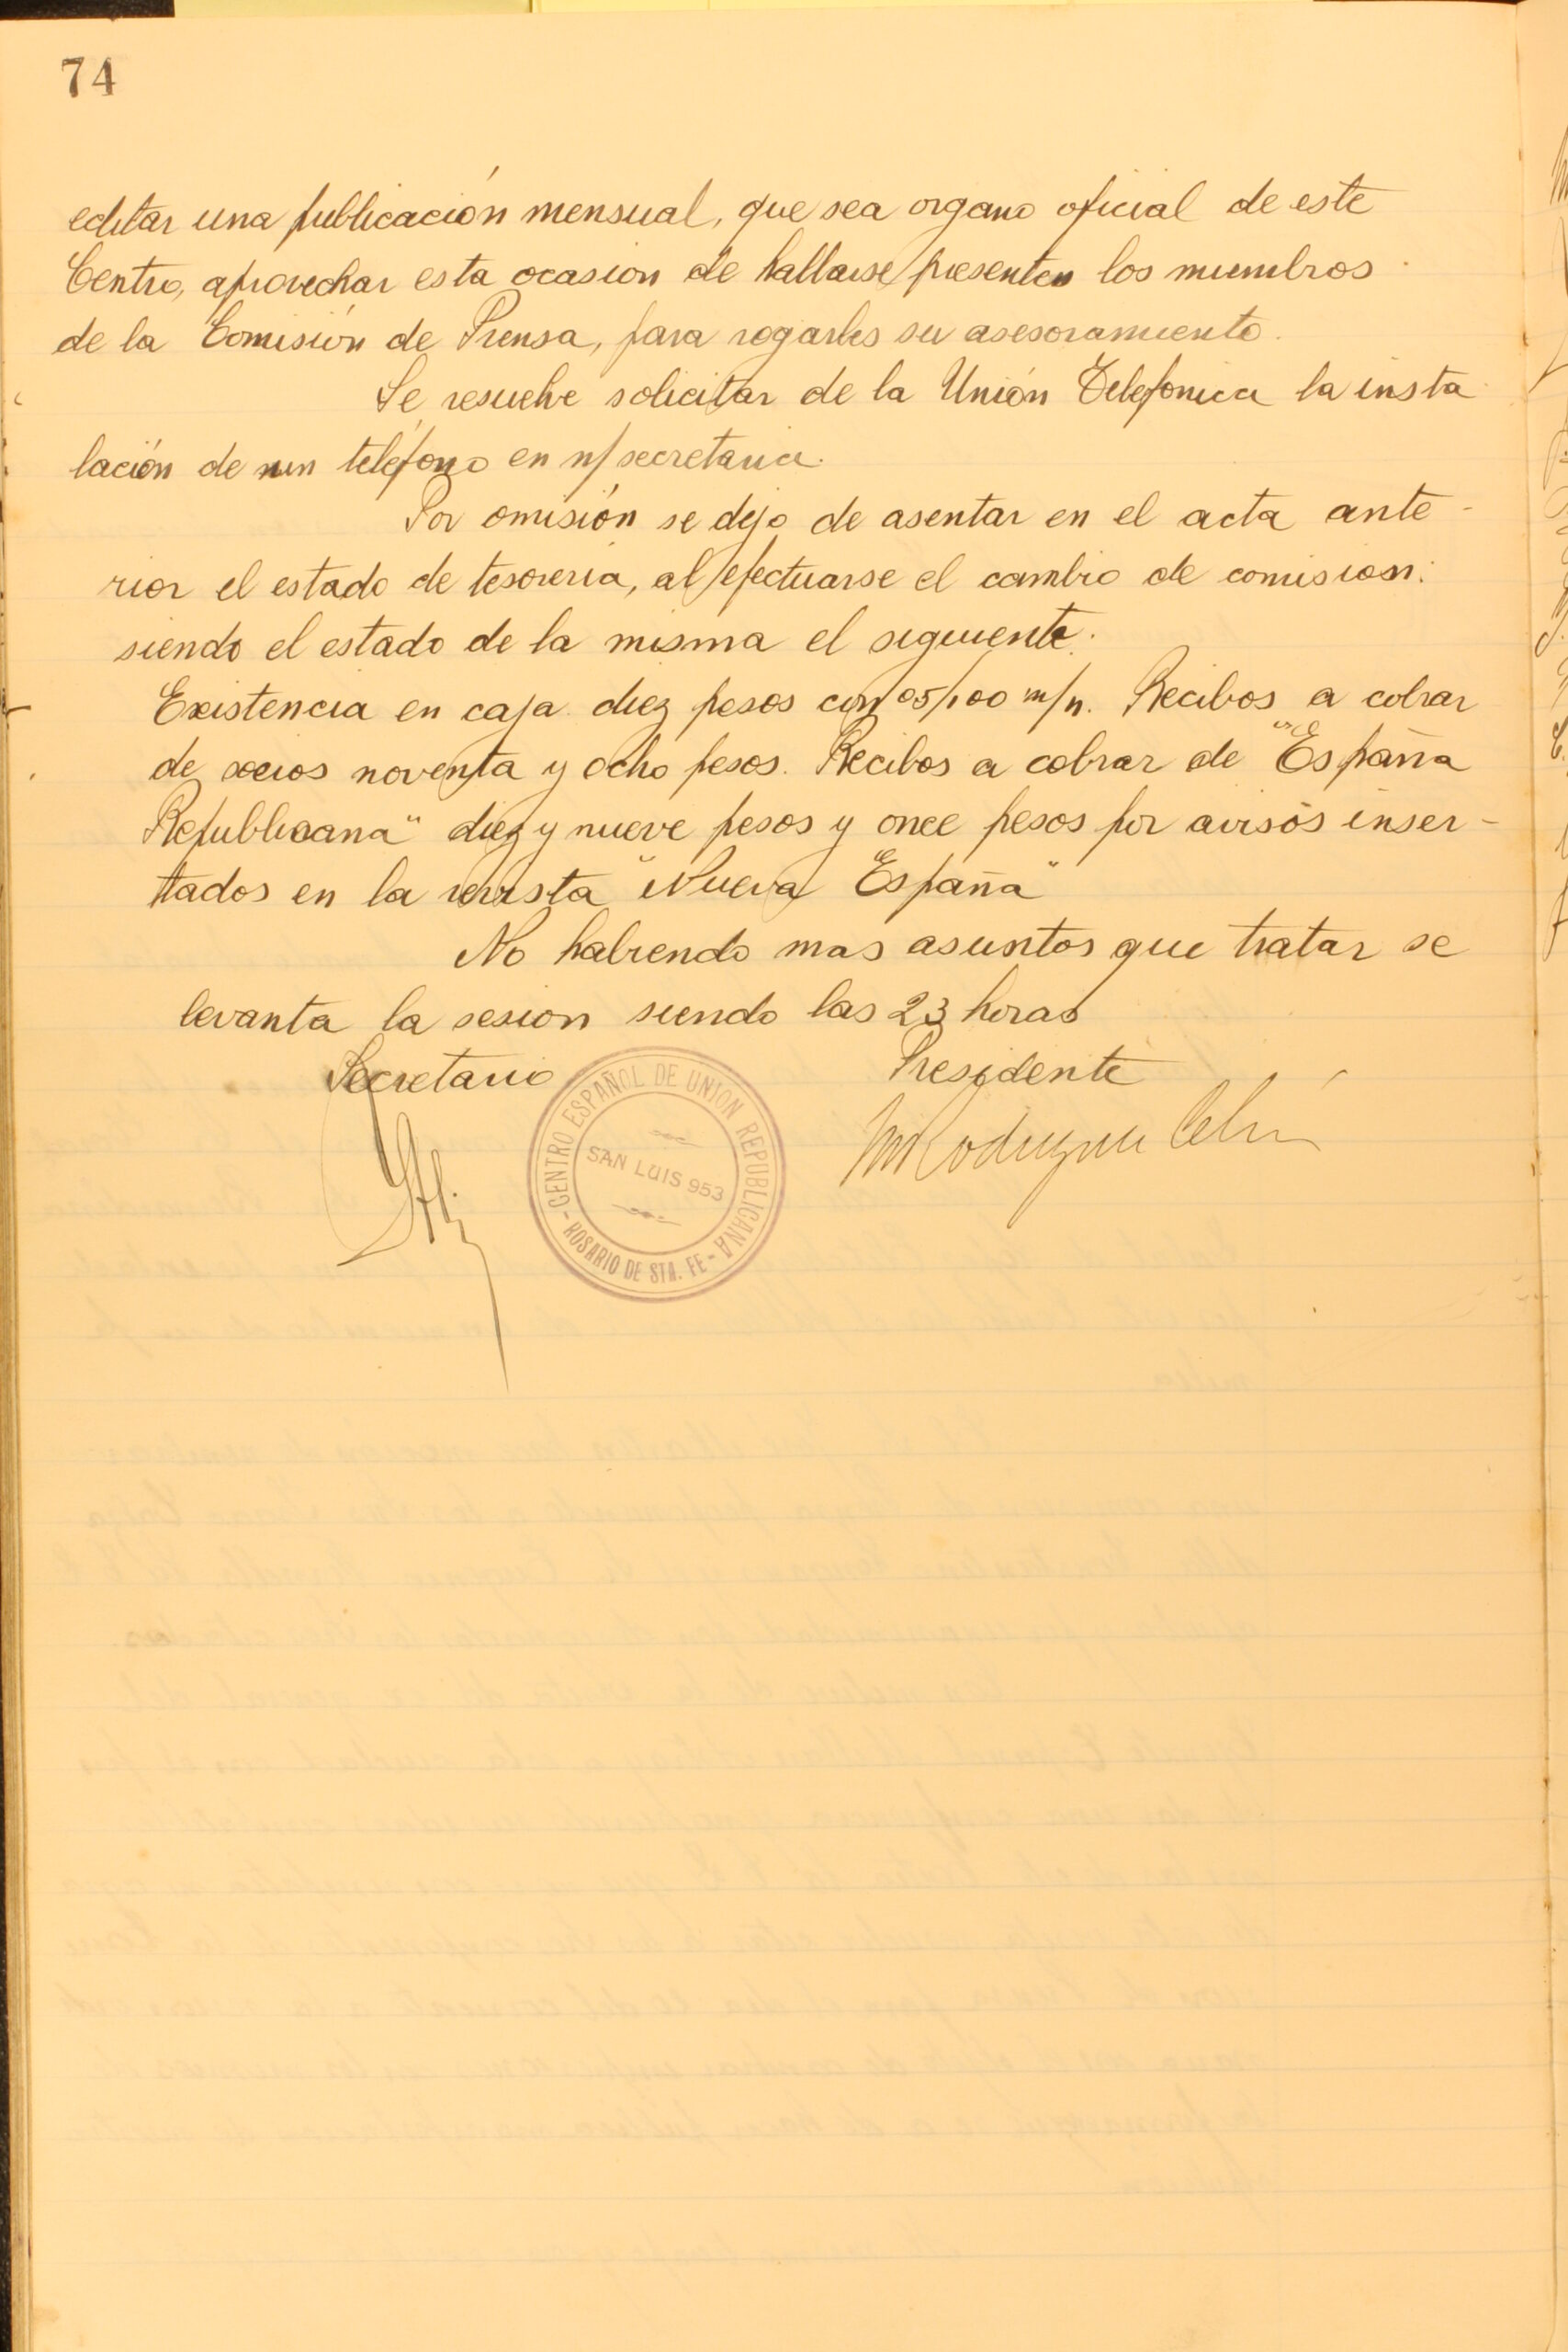 74
editar una publicación mensual, que sea organo oficial de este
Centro, aprovechar esta ocasion de hallarse presentes los miembros
de la Comisión de Prensa, para rogarles su asesoramiento.
Se resuelve solicitar de la Unión Telefonica la insta
lación de un teléfono en n/ secretaria.
Por omisión se dejo de asentar en el acta ante-
rior el estado de tesoreria, al efectuarse el cambio de comision:
siendo el estado de la misma el siguiente:
Existencia en caja diez pesos con 05/100 m/n. Recibos a cobrar
de socios noventa y ocho pesos. Recibos a cobrar de "España
Republicana" diez y nueve pesos y once pesos por avisos inser-
tados en la revista "Nueva España"
No habiendo mas asuntos que tratar se
levanta la sesion siendo las 23 horas
Secretario
Presidente
CENTRO ESPAÑOL DE UNION REPUBLICANA
SAN LUIS 953
- ROSARIO DE STA. FE -